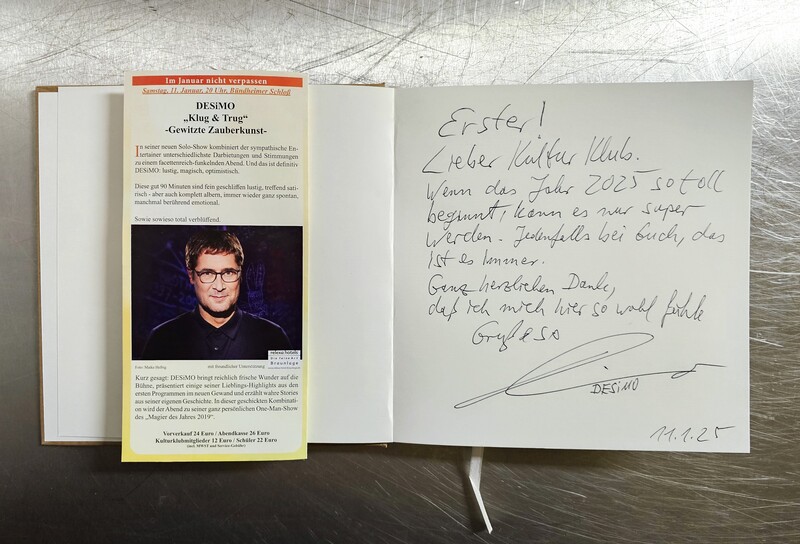 Im Januar nicht verpassen
Samstag, 11. Januar, 20 Uhr, Bündheimer Schloß
DESiMO
„Klug & Trug“
-Gewitzte Zauberkunst-
In seiner neuen Solo-Show kombiniert der sympathische En-
tertainer unterschiedlichste Darbietungen und Stimmungen
zu einem facettenreich-funkelnden Abend. Und das ist definitiv
DESiMO: lustig, magisch, optimistisch.
Diese gut 90 Minuten sind fein geschliffen lustig, treffend sati-
risch - aber auch komplett albern, immer wieder ganz spontan,
manchmal berührend emotional.
Sowie sowieso total verblüffend.
relexa hotels
Die feine Art
Braunlage
Foto: Marko Heßling
mit freundlicher Unterstützung
Kurz gesagt: DESiMO bringt reichlich frische Wunder auf die
Bühne, präsentiert einige seiner Lieblings-Highlights aus den
ersten Programmen im neuen Gewand und erzählt wahre Stories
aus seiner eigenen Geschichte. In dieser geschickten Kombinati-
on wird der Abend zu seiner ganz persönlichen One-Man-Show
des „Magier des Jahres 2019“.
Vorverkauf 24 Euro / Abendkasse 26 Euro
Kulturklubmitglieder 12 Euro / Schüler 22 Euro
(incl. MWST und Service-Gebühr)
Erster!
Lieber Kultur Klub.
Wenn das Jahr 2025 so toll
beginnt, kann es nur super
werden - Jedenfalls bei Euch, das
ist es immer.
Ganz herzlichen Dank,
daß ich mich hier so wohl fühle
DESiMO
11.1.25